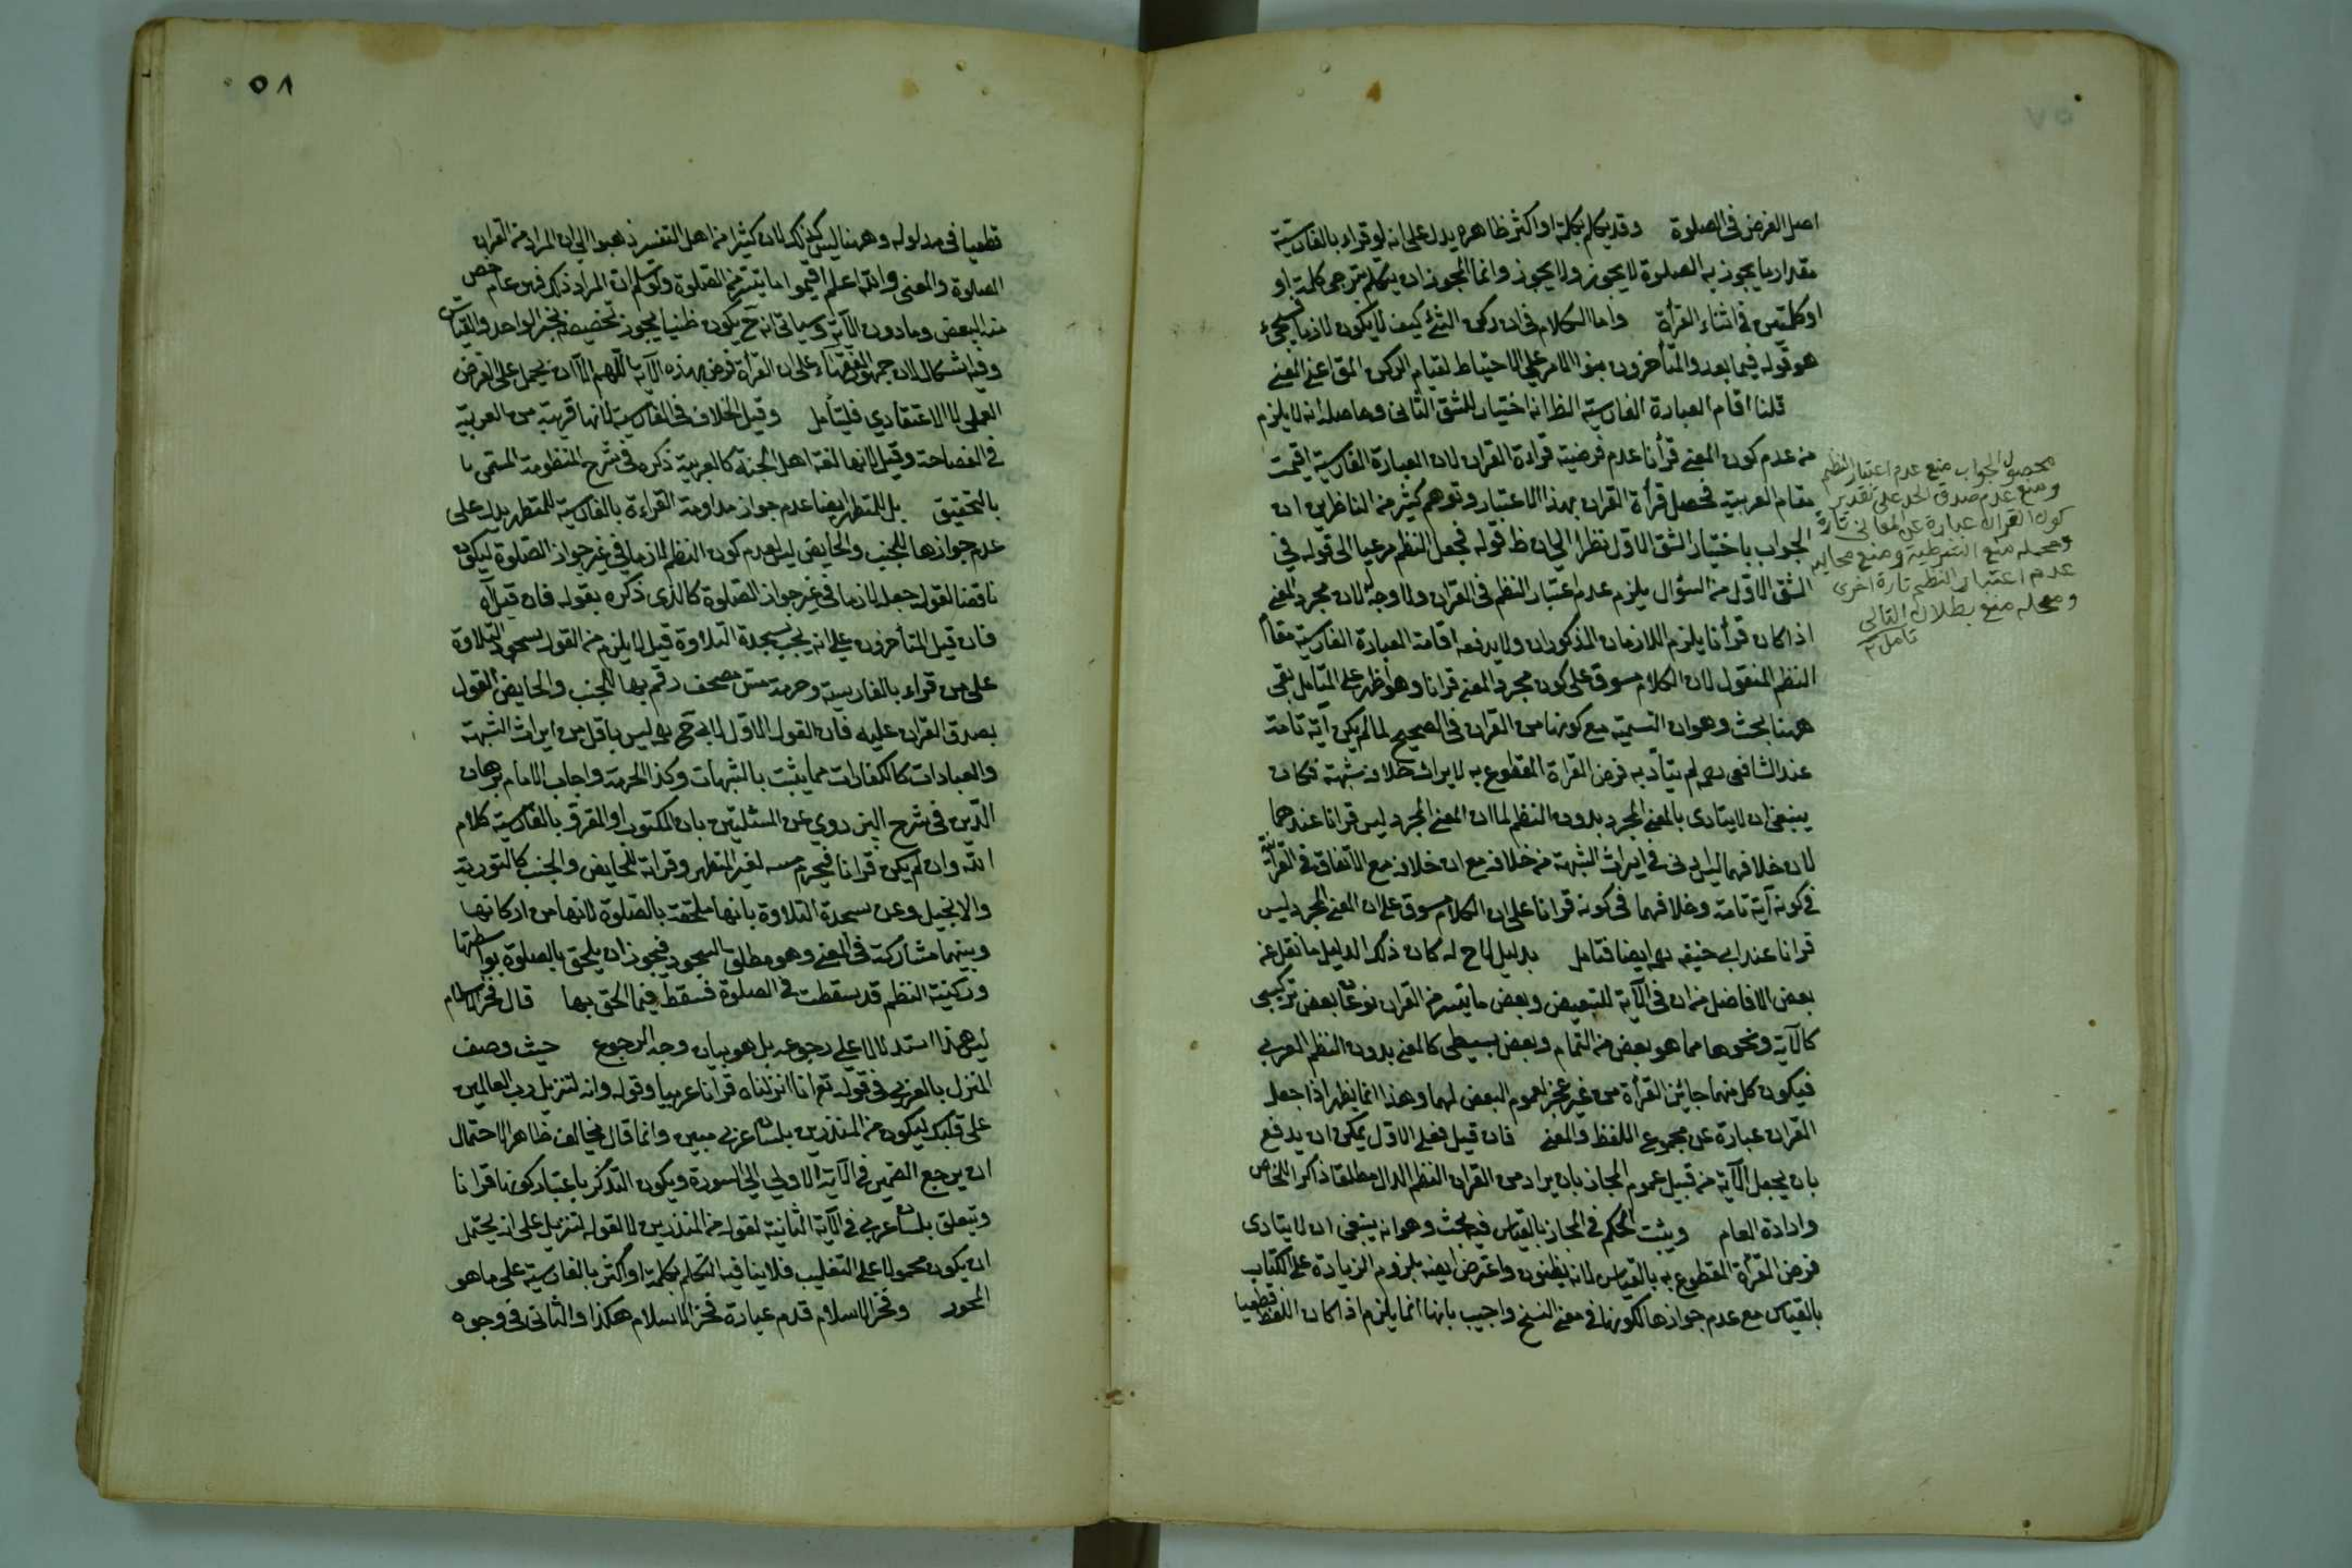 اصل الفرض في الصلوة وقد يتكلم بكلمة او اكثر ظاهره يدل على انه لو قراء بالفارسية
مقدار ما يجوز به الصلوة لا يجوز ولا يجوز وانما المجوز ان يتكلم بترجمي كلمة او
او كلمتين في اثناء القرأة واما الكلام في ان ركن الشئ كيف لا يكون لازما فسيجئ
هو قوله فيما بعد والمتأخرون بنوا الامر على الاحتياط لقيام الركن المقا عنى المعنى
قلنا اقام العبارة الفارسية الظ انه اختيار للشق الثاني وحاصله انه لا يلزم
من عدم كون المعنى قرأنا عدم فرضية قراءة القران لان العبارة الفارسية اقيمت
مقام العربية فحصل قرأة القران بهذا الاعتبار وتوهم كثير من الناظرين ان
الجواب باختيار الشق الاول نظرا الى ان ظ قوله فجعل النظم مرعيا الى قوله في
الشق الاول من السؤال يلزم عدم اعتبار النظم في القران ولا وجه له لان مجرد المعنى
اذا كان قرأنا يلزم اللازمان المذكوران ولا يدفعه اقامة العبارة الفارسية مقام
النظم المنقول لان الكلام مسوق على كون مجرد المعنى قرانا وهو اظهر على المتأمل بقي
ههنا بحث وهو ان التسمية مع كونها من القران في الصحيح لما لم يكن آية تامة
عند الشافعي رحمه لم يتأد به فرض القراة المقطوع به لايراث خلافه شبهة فكان
ينبغي ان لا يتادى بالمعنى المجرد بدون النظم لما ان المعنى المجرد ليس قرانا عندهما
لان خلافهما ليس ادنى في ايراث الشبهة من خلافه مع ان خلافه مع الاتفاق في القرآنية
في كونه آية تامة وخلافهما في كونه قرانا على ان الكلام مسوق على ان المعنى المجرد ليس
قرانا عند ابي حنيفه رحمه ايضا فتامل بدليل لاح له كان ذلك الدليل ما نقل عن
بعض الافاضل من ان في الآية للتبعيض وبعض ما تيسر من القران نوعان بعض تركيبي
كالآية ونحوها مما هو بعض من التمام وبعض بسيطي كالمعنى بدون النظم العربي
فيكون كل منهما جائز القرأة من غير عجز لعموم البعض لهما وهذا انما يظهر اذا جعل
القران عبارة عن مجموع اللفظ والمعنى فان قيل فعلى الاول يمكن ان يدفع
بان يجعل الآية من قبيل عموم المجاز بان يراد من القران النظم الدال مطلقا ذاكرا الخاص
وارادة العام ويثبت الحكم في المجاز بالقياس فيه بحث وهو انه ينبغي ان لا يتادى
فرض القرأة المقطوع به بالقياس لانه يظنون واعترض ايضه بلزوم الزيادة على الكتاب
بالقياس مع عدم جوازها لكونها في معنى النسخ واجيب بانها انما يلزم اذا كان اللفظ قطعيا
محصول الجواب منع عدم اعتبار النظم
ومنع عدم صدق الحد على تقدير
كون القران عبارة عن المعاني تارة
ومحصله منع الشرطية ومنع محالية
عدم اعتبار النظم تارة اخرى
ومحصله منع بطلان التالي
تامل
٥٧
٥٨
قطعيا في مدلوله وههنا ليس كذلك لان كثيرا من اهل التفسير ذهبوا الى ان المراد من القران
الصلوة والمعنى والله اعلم اقيموا ما تيسر من الصلوة ولو سلم ان المراد ذلك فهو عام خص
منه البعض وما دون الآية وسياتي انه ح يكون ظنيا يجوز تخصيصه بخبر الواحد والقياس
وفيه اشكال لان جمهور الفقهاء على ان القرأة فرض بهذه الآية اللهم الا ان يحمل على الفرض
العملي لا الاعتقادي فليتأمل وقيل الخلاف في الفارسية لانها قريبة من العربية
في الفصاحة وقيل لانها لغة اهل الجنة كالعربية ذكره في شرح المنظومة المسمى با
بالتحقيق بل للمتطهر ايضا عدم جواز مداومة القراءة بالفارسية للمتطهر يدل على
عدم جوازها للجنب والحايض ليس لعدم كون النظم لازما في غير جواز الصلوة ليكون
ناقضا لقوله جعله لازما في غير جواز الصلوة كالذي ذكره بقوله فان قيل آه
فان قيل المتأخرون على انه يجب سجدة التلاوة قيل لا يلزم من القول بسجود التلاوة
على من قراء بالفارسية وحرمة مس مصحف رقم بها للجنب والحايض القول
بصدق القران عليه فان القول الاول لابي ح رحمه ليس باقل من ايراث الشبهة
والعبادات كالكفارات مما يثبت بالشبهات وكذا الحرمة واجاب الامام برهان
الدين في شرح البزدوي عن المسئلتين بان المكتوب او المقرؤ بالفارسية كلام
الله وان لم يكن قرانا فيحرم مسه لغير المتطهر وقراته للحايض والجنب كالتورية
والانجيل وعن سجدة التلاوة بانها ملحقة بالصلوة لانها من اركانها
وبينهما مشاركة في المعنى وهو مطلق السجود فيجوز ان يلحق بالصلوة بواسطتها
وركنية النظم قد سقطت في الصلوة فسقط فيما الحق بها قال فخر الاسلام
ليس هذا استدلالا على رجوعه بل هو بيان وجه الرجوع حيث وصف
المنزل بالعربي في قوله تع انا انزلناه قرانا عربيا وقوله وانه لتنزيل رب العالمين
على قلبك ليكون من المنذرين بلسان عربي مبين وانما قال يخالف ظاهرا لاحتمال
ان يرجع الضمير في الآية الاولى الى السورة ويكون التذكر باعتبار كونها قرانا
وتتعلق بلسان عربي في الآية الثانية لقوله من المنذرين لا لقوله لتنزيل على انه يحتمل
ان يكون محمولا على التغليب فلا ينافيه التكلم بكلمة او اكثر بالفارسية على ما هو
المحور وفخر الاسلام قدم عبارة فخر الاسلام هكذا والثاني في وجوه